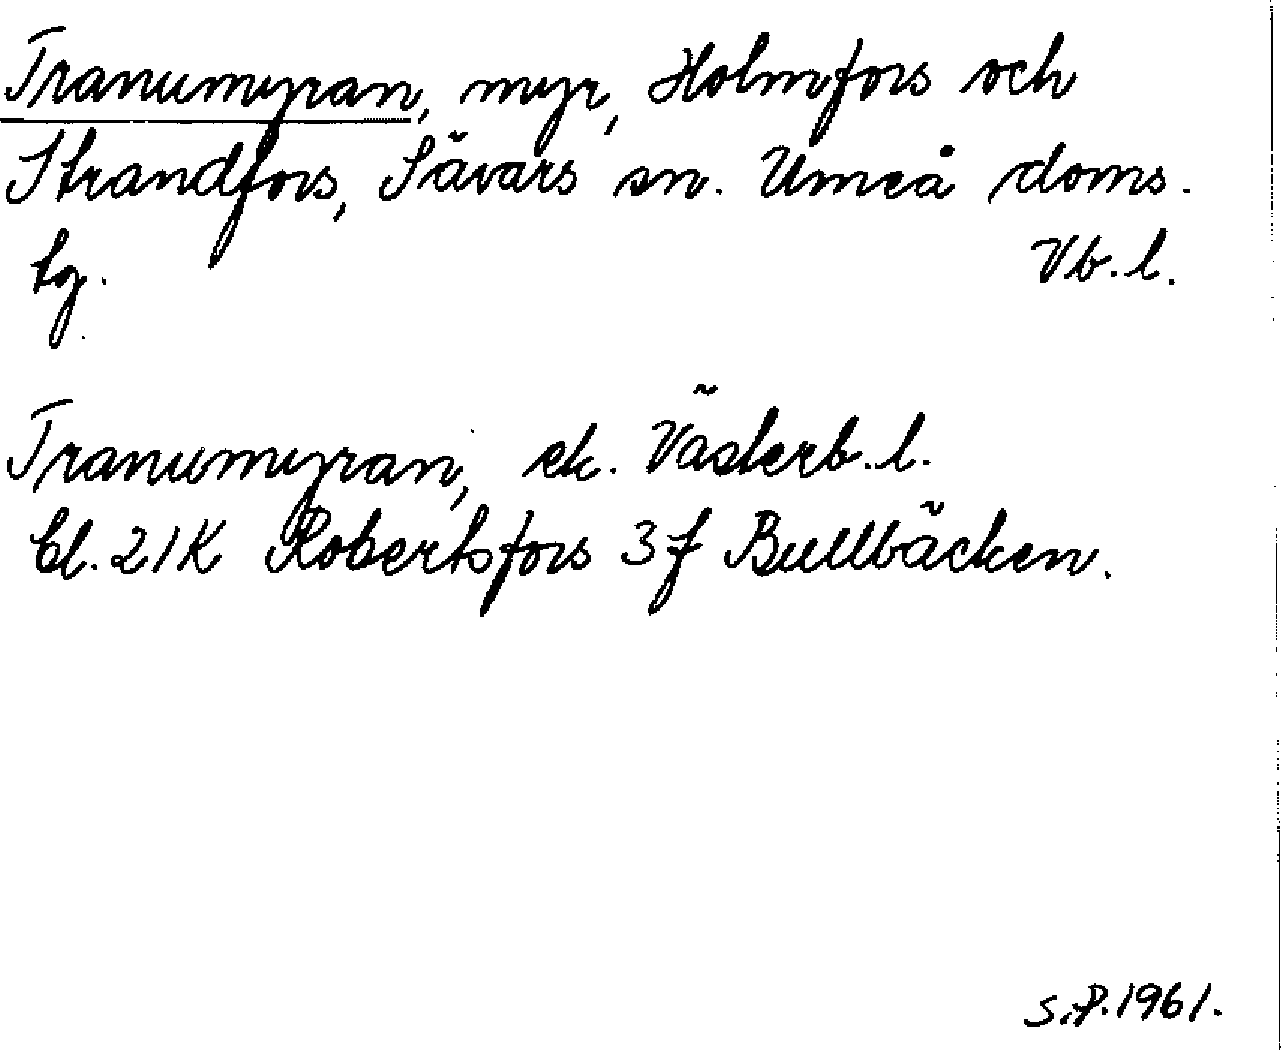 Tranumyran, myr, Holmfors och
Strandfors, Sävars sn. Umeå doms.
tg. Vb.l.
Tranumyran, ek. Västerb.l.
bl. 21K Robertsfors 3f Bullbäcken.
S.P. 1961.